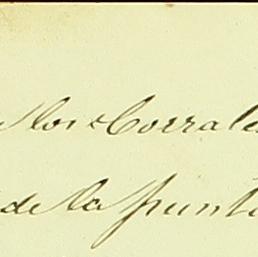 los Corrale
de la punt